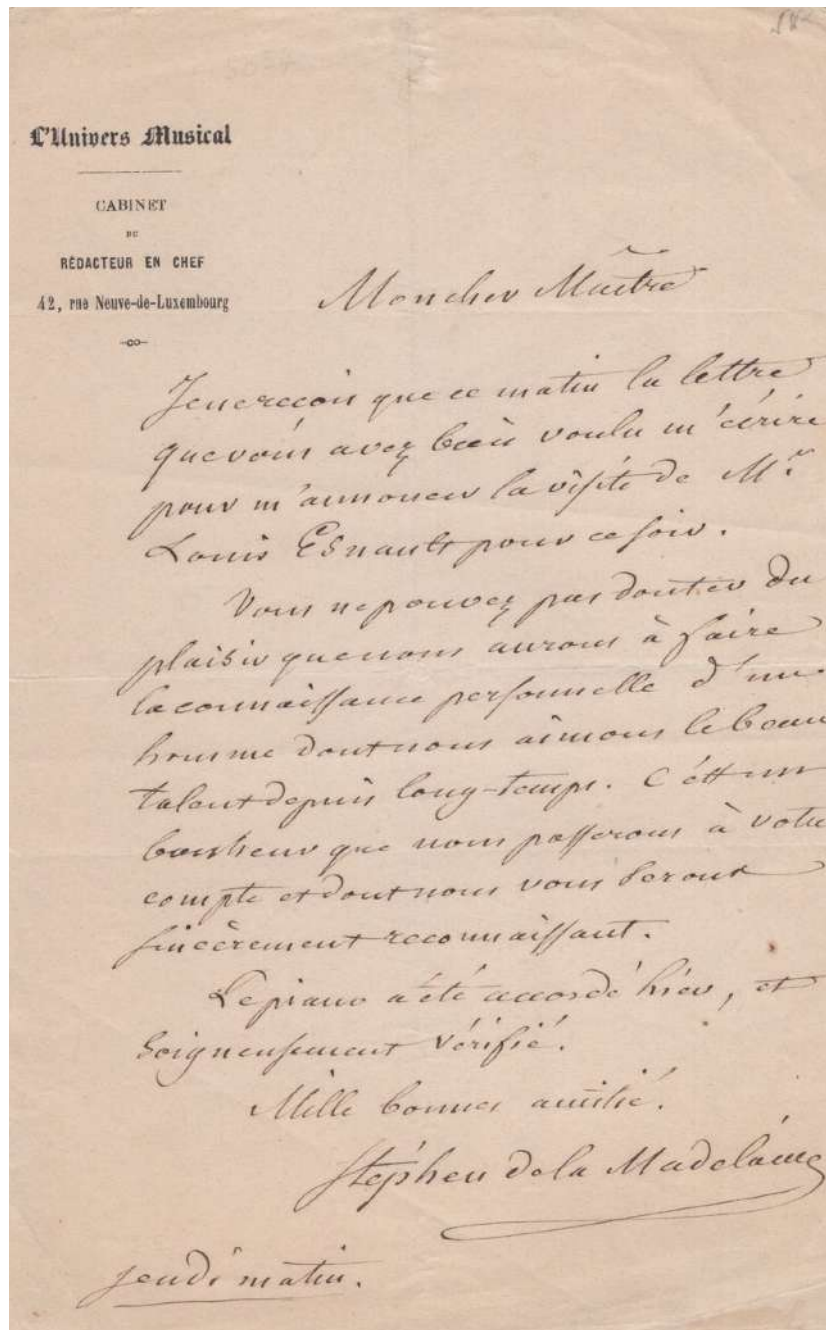 L'Univers Musical
CABINET
DU
RÉDACTEUR EN CHEF
42, rue Neuve-de-Luxembourg
Mon cher Maître
Je ne reçois que ce matin la lettre
que vous avez bien voulu m'écrire
pour m'annoncer la visite de Mr.
Louis Esnault pour ce soir.
Vous ne pouvez pas douter du
plaisir que nous aurons à faire
la connaissance personnelle d'un
homme dont nous aimons le beau
talent depuis long-temps. C'est un
bonheur que nous passerons à votre
compte et dont nous vous serons
sincèrement reconnaissant.
Le piano a été accordé hier, et
soigneusement vérifié.
Mille bonnes amitié.
Stéphen de la Madelaine
jeudi matin.